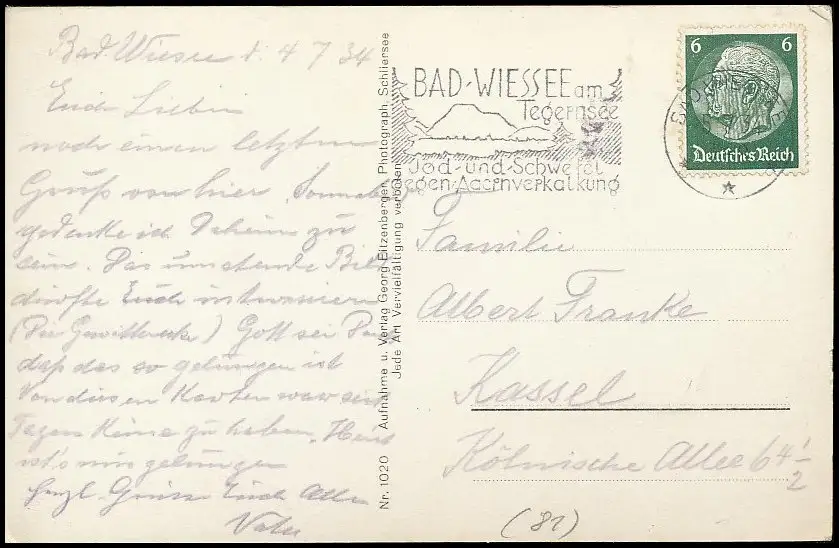 Bad Wiessee d. 4 7 34
Euch Lieben
noch einen letzten
Gruß von hier, Sonnab
gedenke ich Daheim zu
sein. Das umstehende Bild
dürfte Euch interessieren
(Die Gewitterecke) Gott sei Dank
daß das so gelungen ist
Von diesen Karten war seit
Tagen keine zu haben, Heut
ist's mir gelungen
Herzl. Grüsse Euch Allen
Vater
Nr. 1020 Aufnahme u. Verlag Georg Eitzenberger, Photograph, Schliersee
Jede Art Vervielfältigung verboten
BAD-WIESSEE am
Tegernsee
Jod-und-Schwefel
gegen-Adernverkalkung
6 6
Deutsches Reich
Familie
Albert Franke
Kassel
Kölnische Allee 64 1/2
(82)